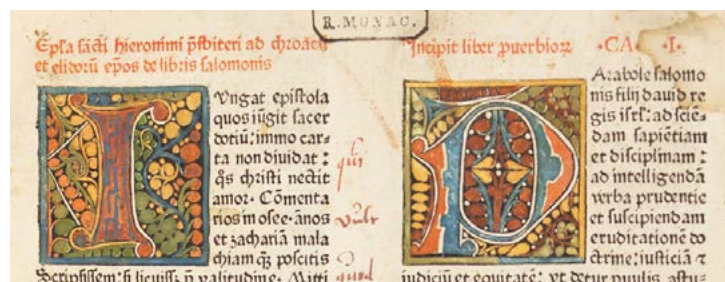 R. MONAC.
Epl'a sācti hieronimi p̄sbiteri ad chroaciū
et eliodorū ep̄os de libris salomonis
I
Vngat epistola
quos iūgit sacer
dotiū: immo car-
ta non diuidat:
q̄s christi nectit
amor. Cōmenta
rios in osee. amos
et zachariā mala
chiam qz poscitis
Scripsissem: si licuiss; p̄ valitudine. Mitti
Incipit liber prouerbioꝝ .CA. .I.
P
Arabole salomo
nis filij dauid re
gis isrl': ad sciē-
dam sapiētiam
et disciplinam:
ad intelligendā
verba prudentie
et suscipiendam
eruditionē do
ctrine: iusticiā ⁊
iudiciū et equitatē: vt detur puulis astu-